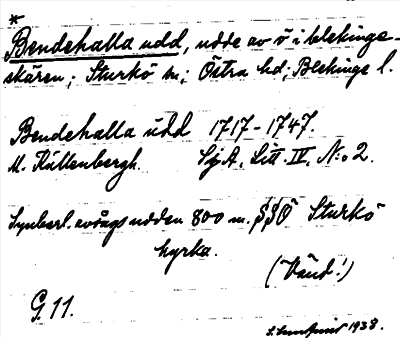 *
Bendehalla udd, udde av ö i blekinge-
skären; Sturkö sn; Östra hd; Blekinge l.
Bendehalla udd 1717-1747.
M. Källenbergh. Sj.A. Litt. IV, N:o 2.
Synbarl. avsågs udden 800 m. SSÖ Sturkö
kyrka.
(Vänd!)
G 11.
1938.